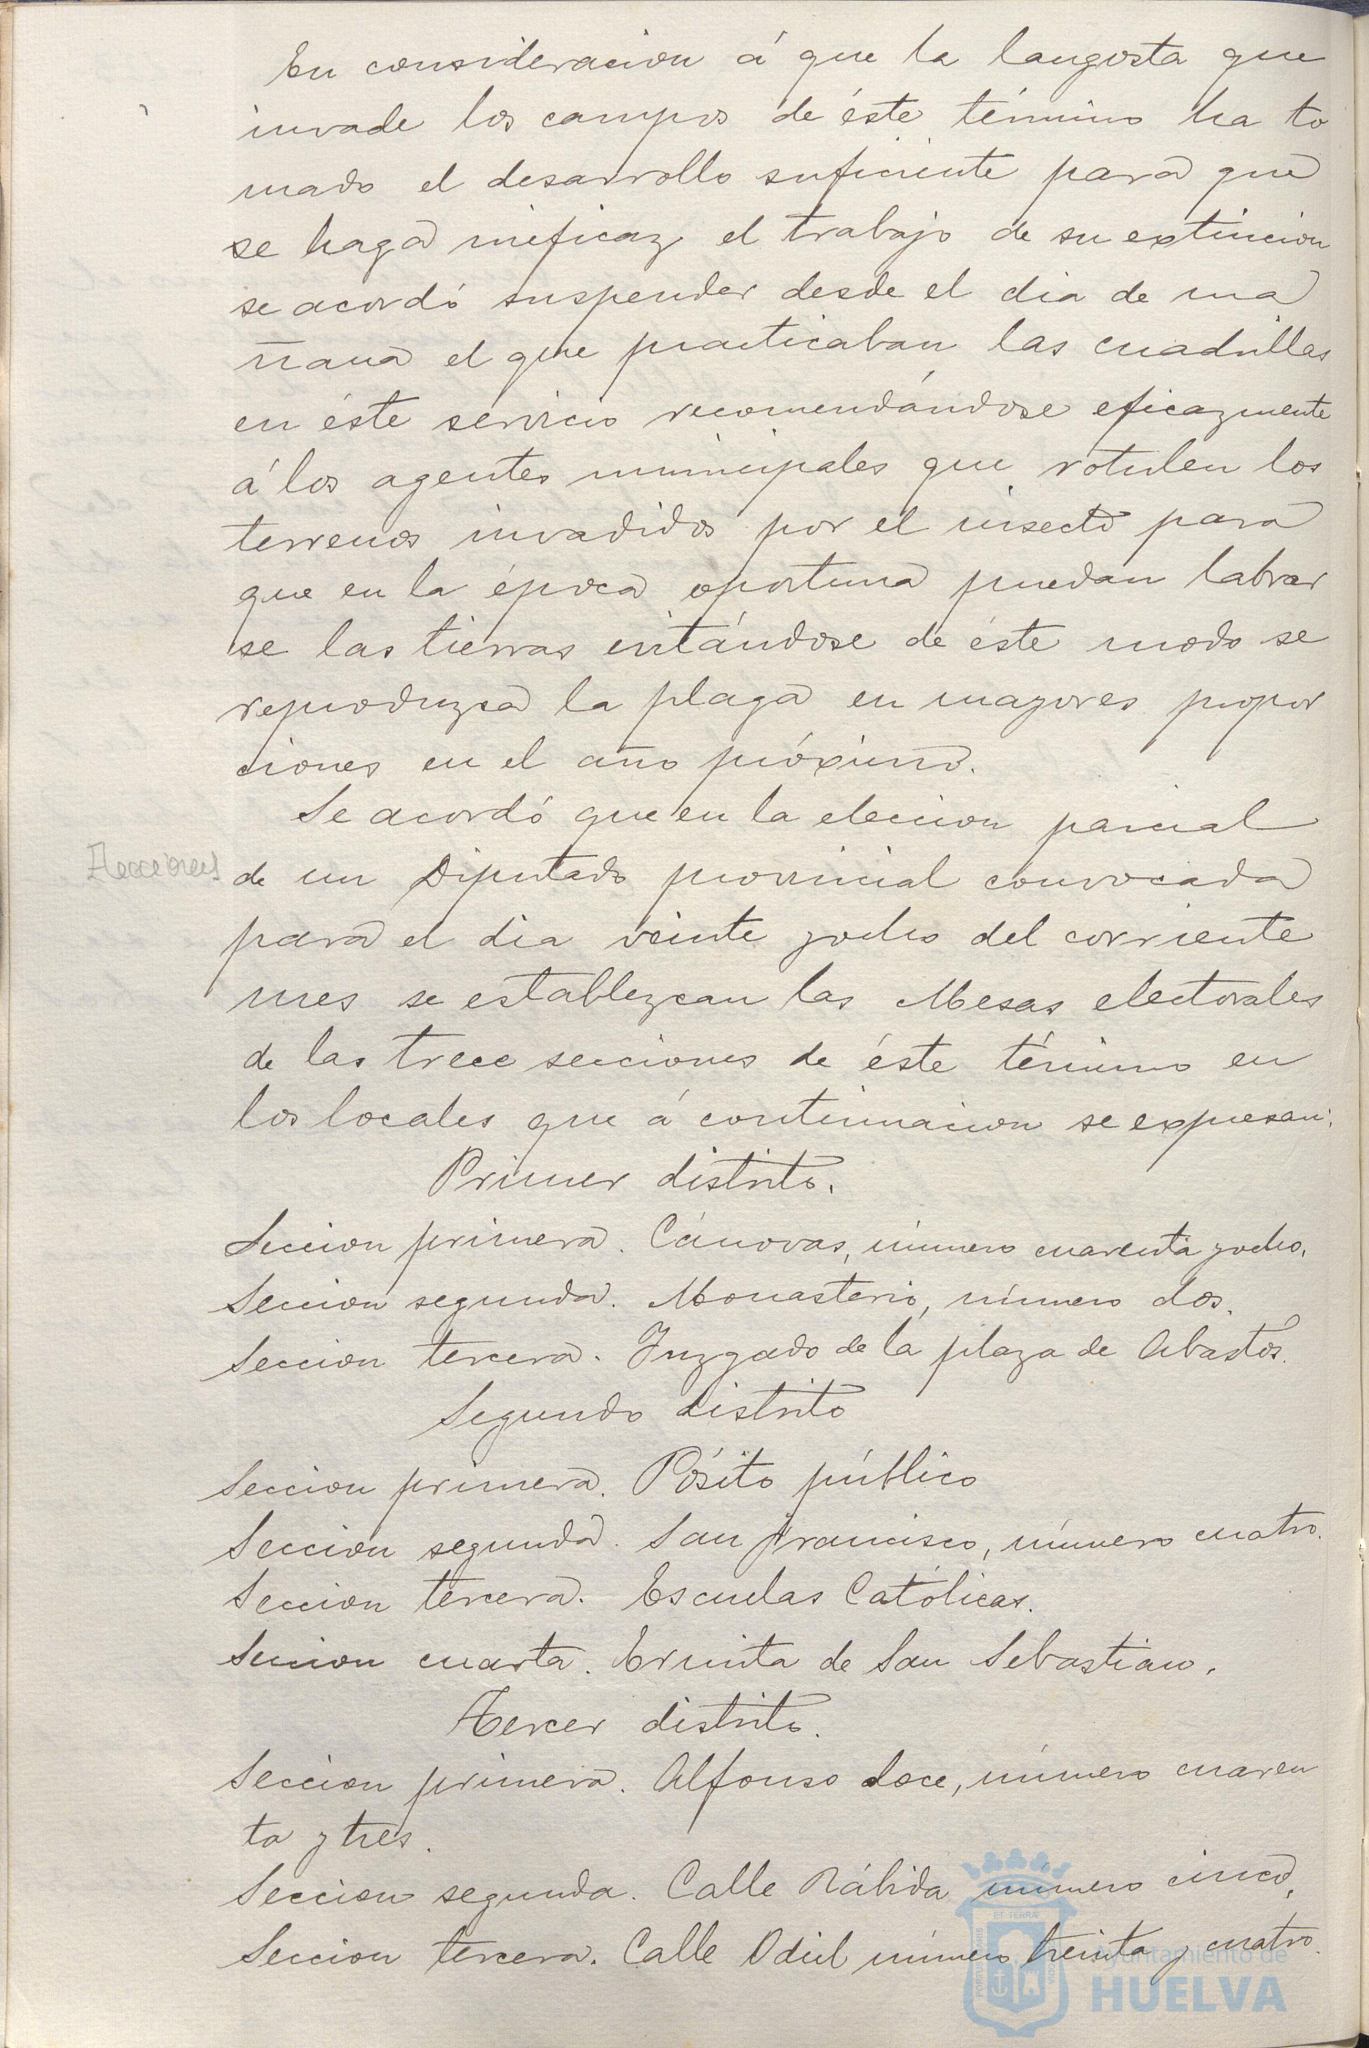 En consideracion á que la langosta que
invade los campos de éste término ha to
mado el desarrollo suficiente para que
se haga ineficaz el trabajo de su extincion
se acordó suspender desde el dia de ma
ñana el que practicaban las cuadrillas
en éste servicio recomendándose eficazmente
á los agentes municipales que rotulen los
terrenos invadidos por el insecto para
que en la época oportuna puedan labrar
se las tierras evitándose de éste modo se
reproduzca la plaga en mayores propor
ciones en el año próximo.
Se acordó que en la eleccion parcial
Elecciones
de un Diputado provincial convocada
para el dia veinte y ocho del corriente
mes se establezcan las Mesas electorales
de las trece secciones de éste término en
los locales que á continuacion se expresan:
Primer distrito.
Seccion primera. Cánovas, número cuarenta y ocho.
Seccion segunda. Monasterio, número dos.
Seccion tercera. Juzgado de la plaza de Abastos.
Segundo distrito
Seccion primera. Pósito público
Seccion segunda. San francisco, número cuatro.
Seccion tercera. Escuelas Católicas.
Seccion cuarta. Ermita de San Sebastian.
Tercer distrito.
Seccion primera. Alfonso doce, número cuaren
ta y tres.
Seccion segunda. Calle Rábida número cinco,
Seccion tercera. Calle Odiel número treinta y cuatro.
Ayuntamiento de
HUELVA